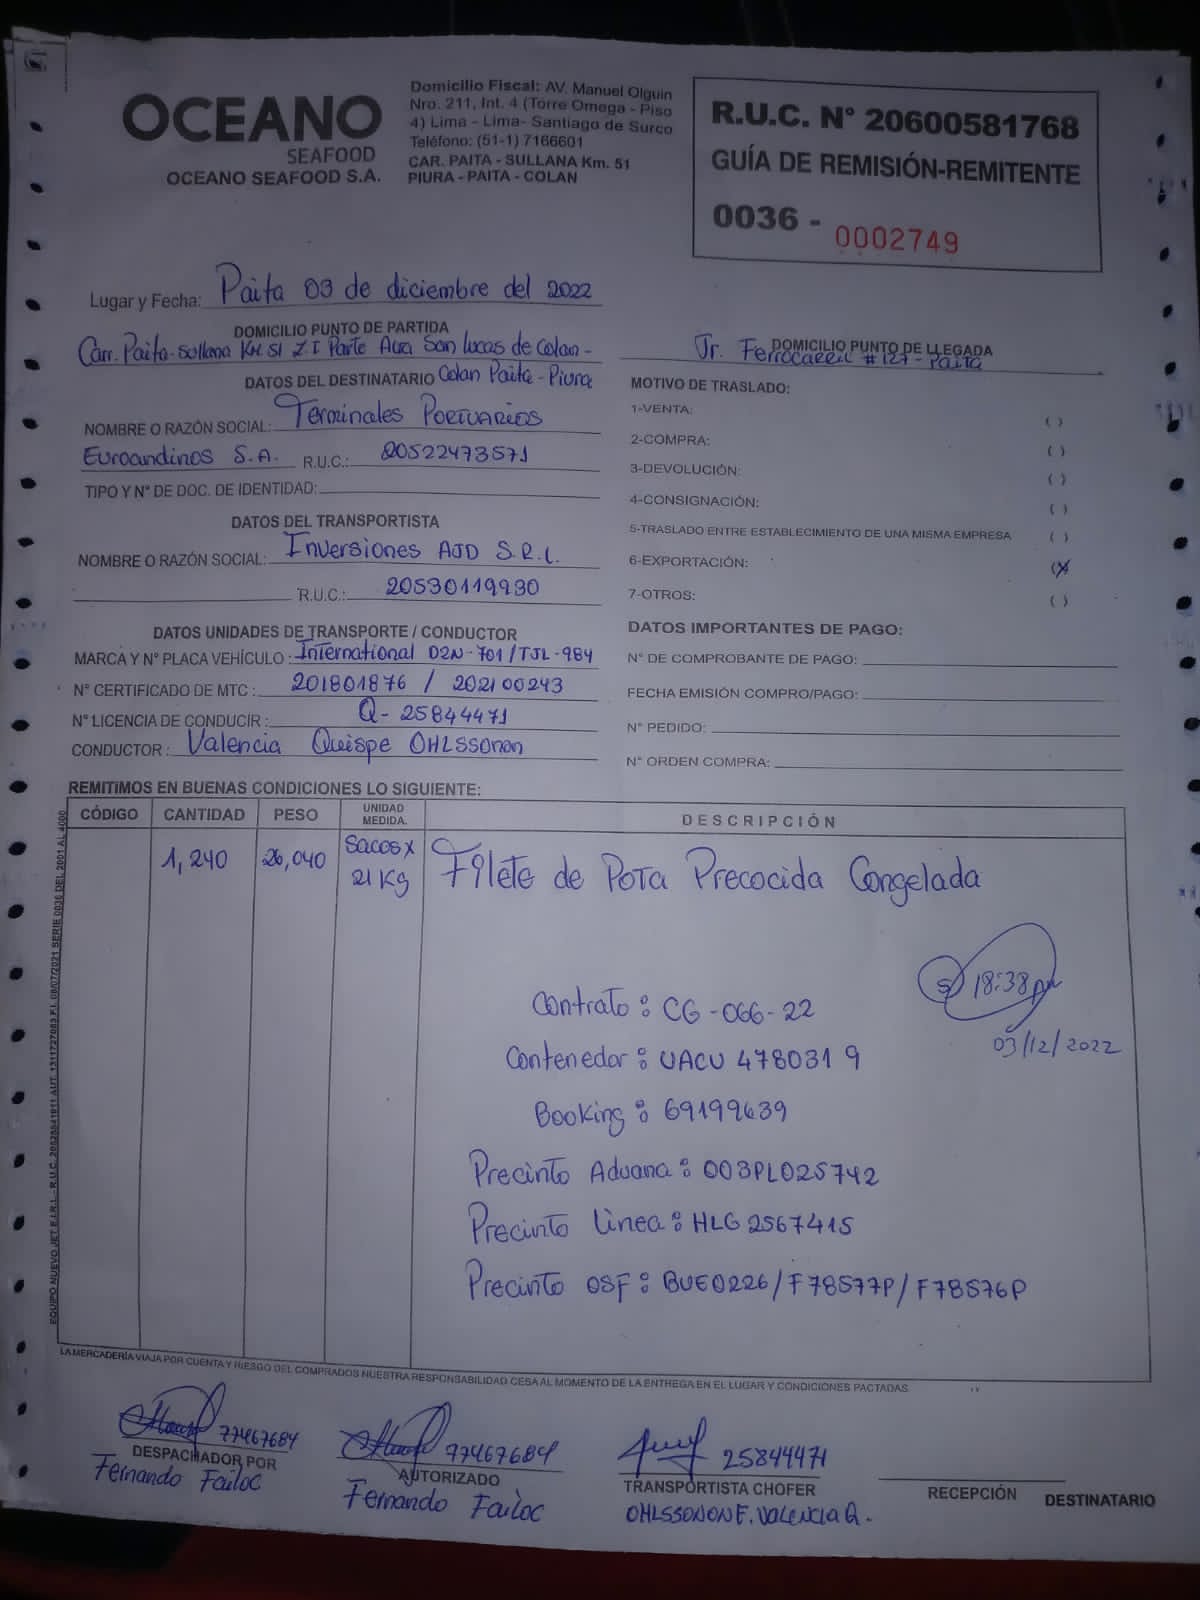 OCEANO
SEAFOOD
OCEANO SEAFOOD S.A.
Domicilio Fiscal: AV. Manuel Olguin
Nro. 211, Int. 4 (Torre Omega - Piso
4) Lima - Lima- Santiago de Surco
Teléfono: (51-1) 7166601
CAR. PAITA - SULLANA Km. 51
PIURA - PAITA - COLAN
R.U.C. N° 20600581768
GUÍA DE REMISIÓN-REMITENTE
0036 - 0002749
Lugar y Fecha: Paita 03 de diciembre del 2022
DOMICILIO PUNTO DE PARTIDA
Carr. Paita-Sullana KM. 51 Z.I Parte Alta San Lucas de Colan -
Colan Paita - Piura
DOMICILIO PUNTO DE LLEGADA
Jr. Ferrocarril #127 - Paita
DATOS DEL DESTINATARIO
NOMBRE O RAZÓN SOCIAL: Terminales Portuarios
Euroandinos S.A. R.U.C.: 20522473571
TIPO Y N° DE DOC. DE IDENTIDAD:
DATOS DEL TRANSPORTISTA
NOMBRE O RAZÓN SOCIAL: Inversiones AJD S.R.L.
R.U.C.: 20530119930
DATOS UNIDADES DE TRANSPORTE / CONDUCTOR
MARCA Y N° PLACA VEHÍCULO: International D2N-701/TJL-984
N° CERTIFICADO DE MTC: 201801876 / 202100243
N° LICENCIA DE CONDUCIR: Q-25844471
CONDUCTOR: Valencia Quispe OHLSSONon
MOTIVO DE TRASLADO:
1-VENTA: ( )
2-COMPRA: ( )
3-DEVOLUCIÓN: ( )
4-CONSIGNACIÓN: ( )
5-TRASLADO ENTRE ESTABLECIMIENTO DE UNA MISMA EMPRESA ( )
6-EXPORTACIÓN: (X)
7-OTROS: ( )
DATOS IMPORTANTES DE PAGO:
N° DE COMPROBANTE DE PAGO:
FECHA EMISIÓN COMPRO/PAGO:
N° PEDIDO:
N° ORDEN COMPRA:
REMITIMOS EN BUENAS CONDICIONES LO SIGUIENTE:
CÓDIGO CANTIDAD PESO UNIDAD MEDIDA. DESCRIPCIÓN
1,240 26,040 Sacos x 21 Kg Filete de Pota Precocida Congelada
18:38 pm
03/12/2022
Contrato: CG-066-22
Contenedor: UACU 478031 9
Booking: 69199639
Precinto Aduana: 003PL025742
Precinto Linea: HLG 2567415
Precinto OSF: BUE0226/F78577P/F78576P
LA MERCADERÍA VIAJA POR CUENTA Y RIESGO DEL COMPRADOS NUESTRA RESPONSABILIDAD CESA AL MOMENTO DE LA ENTREGA EN EL LUGAR Y CONDICIONES PACTADAS.
77467684
DESPACHADOR POR
Fernando Failoc
77467684
AUTORIZADO
Fernando Failoc
25844471
TRANSPORTISTA CHOFER
OHLSSONON E. VALENCIA Q.
RECEPCIÓN DESTINATARIO